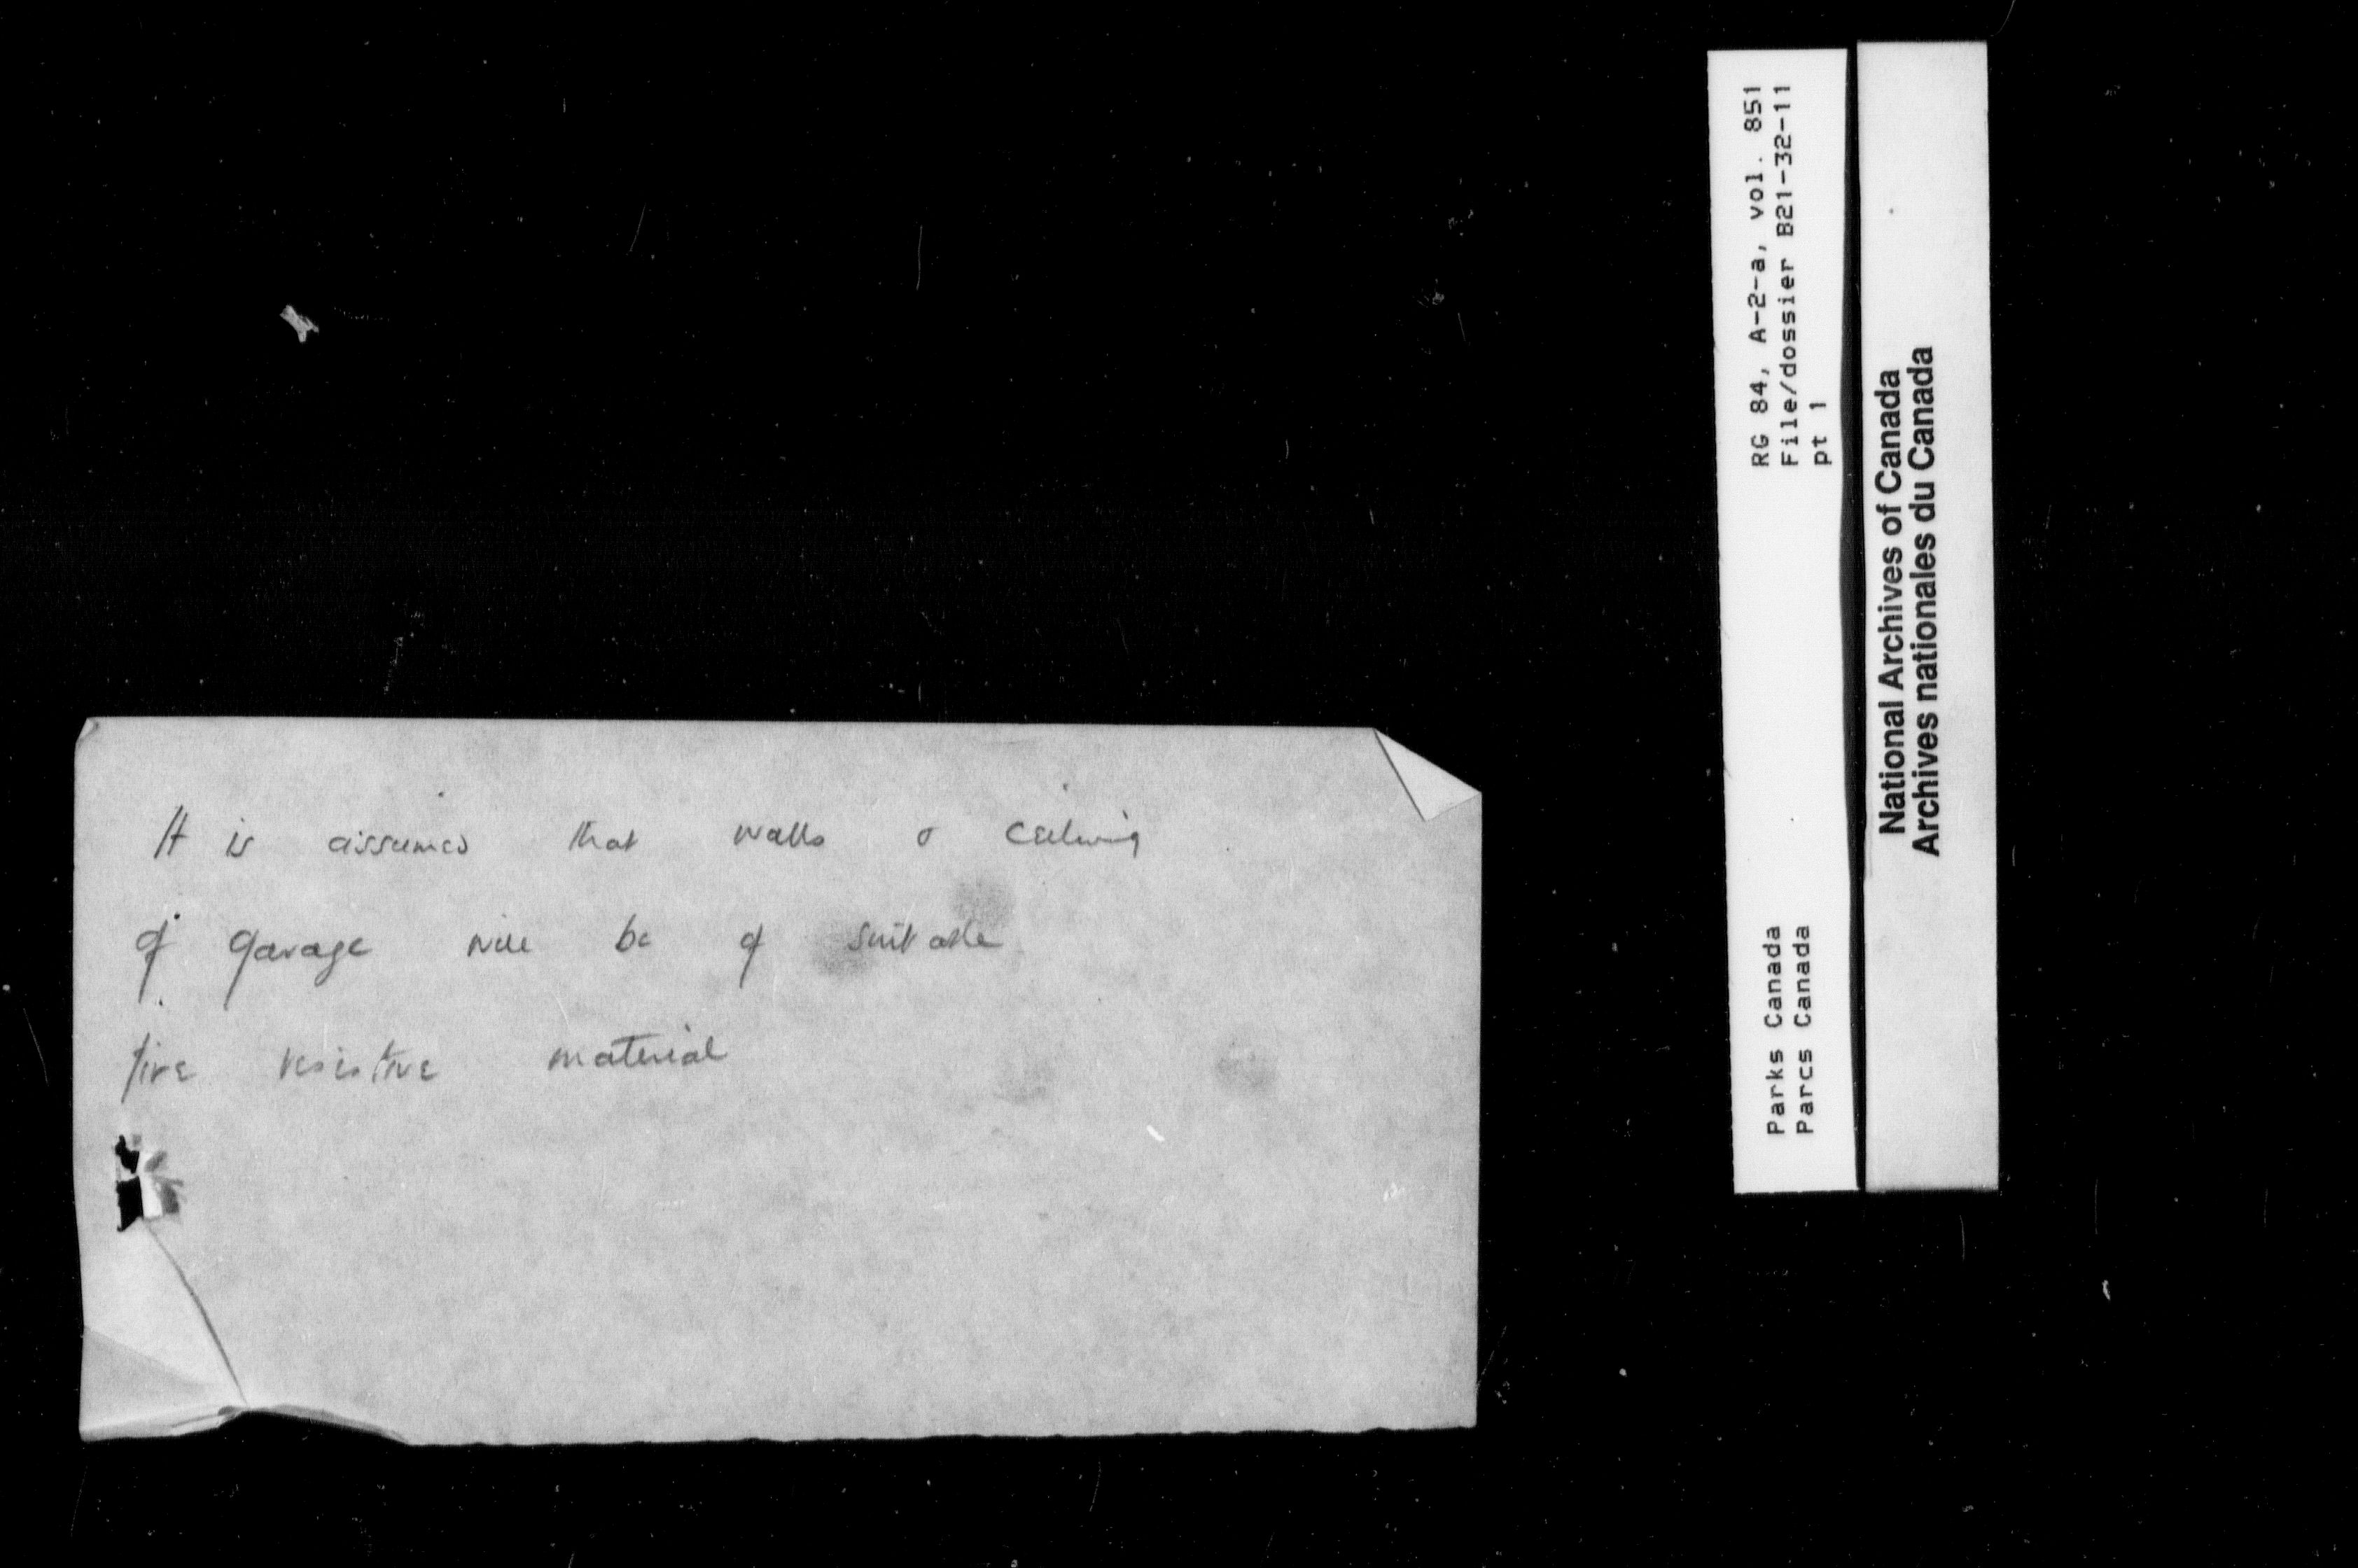 It is assumed that walls & ceiling
of garage will be of suitable
fire resistive material
RG 84, A-2-a, vol. 851
File/dossier B21-32-11
pt 1
Parks Canada
Parcs Canada
National Archives of Canada
Archives nationales du Canada